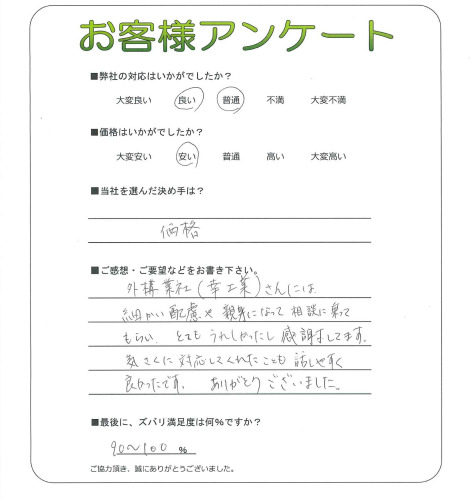 お客様アンケート
■弊社の対応はいかがでしたか？
大変良い 良い 普通 不満 大変不満
■価格はいかがでしたか？
大変安い 安い 普通 高い 大変高い
■当社を選んだ決め手は？
価格
■ご感想・ご要望などをお書き下さい。
外構業社(幸工業)さんには
細かい配慮や親身になって相談に乗って
もらい、とてもうれしかったし感謝してます。
気さくに対応してくれたことも話しやすく
良かったです。 ありがとうございました。
■最後に、ズバリ満足度は何%ですか？
90〜100 %
ご協力頂き、誠にありがとうございました。